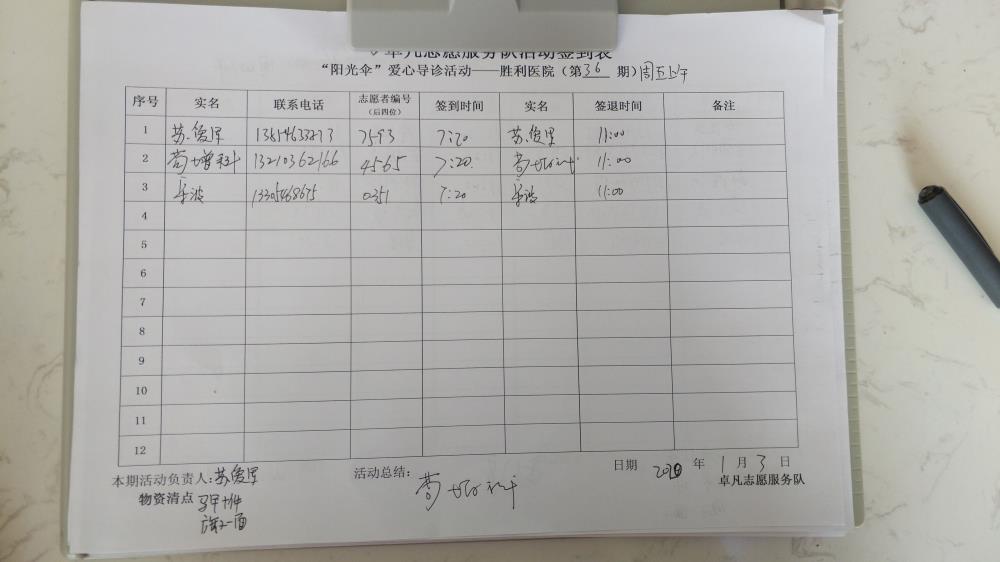 卓凡志愿服务队活动签到表
“阳光伞”爱心导诊活动——胜利医院（第36期）周五上午
序号 实名 联系电话 志愿者编号（后四位） 签到时间 实名 签退时间 备注
1 苏俊军 7593 7:20 苏俊军 11:00
2 苟增科 13210362166 4565 7:20. 苟增科 11:00
3 乐波 13305468675 0351 7:20 乐波 11:00
4
5
6
7
8
9
10
11
12
本期活动负责人:苏俊军 活动总结: 苟增科 日期 年 1 月 3 日
物资清点 马甲十件 卓凡志愿服务队
旗子一面